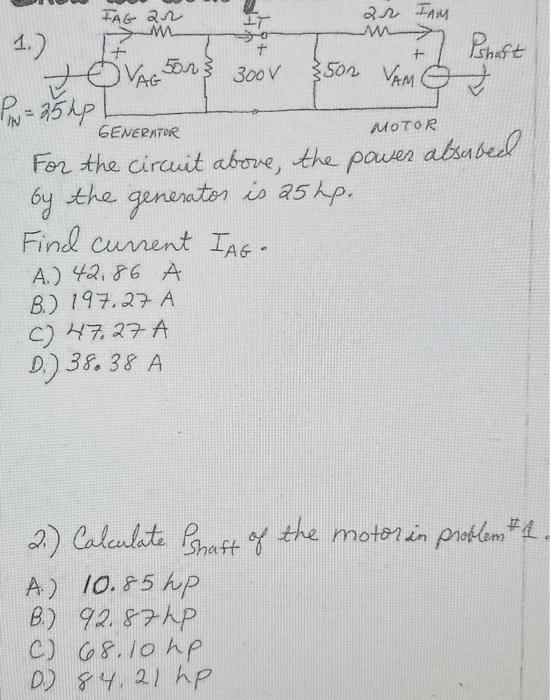 IAG 2Ω IT 2Ω IAM
1.)
+ + + Pshaft
VAG 50Ω 300V 50Ω VAM
PIN = 25hp
GENERATOR MOTOR
For the circuit above, the power absorbed
by the generator is 25 hp.
Find current IAG.
A.) 42.86 A
B.) 197.27 A
C) 47.27 A
D.) 38.38 A
2.) Calculate Pshaft of the motor in problem #1.
A.) 10.85 hp
B.) 92.87 hp
C.) 68.10 hp
D.) 84.21 hp